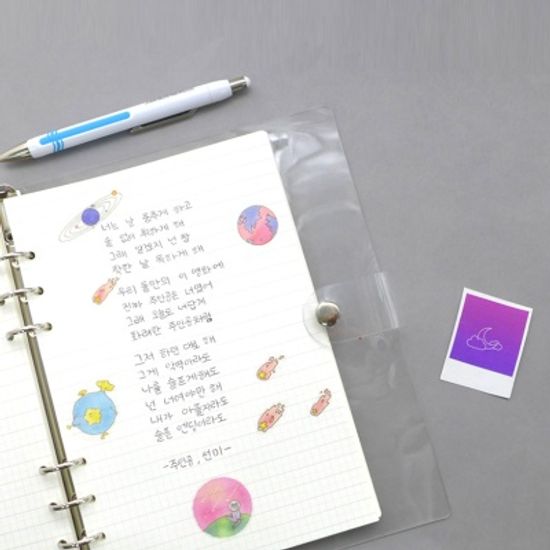 너는 날 춤추게 하고
술 없이 취하게 해
그래 알겠지 넌 참
착한 날 독하게 해
우리 둘만의 이 영화에
진짜 주인공은 너였어
그래 오늘도 너답게
화려한 주인공처럼
그저 하던 대로 해
그게 악역이라도
나를 슬프게 해도
넌 너여야만 해
내가 아플지라도
슬픈 엔딩이라도
-주인공, 선미-